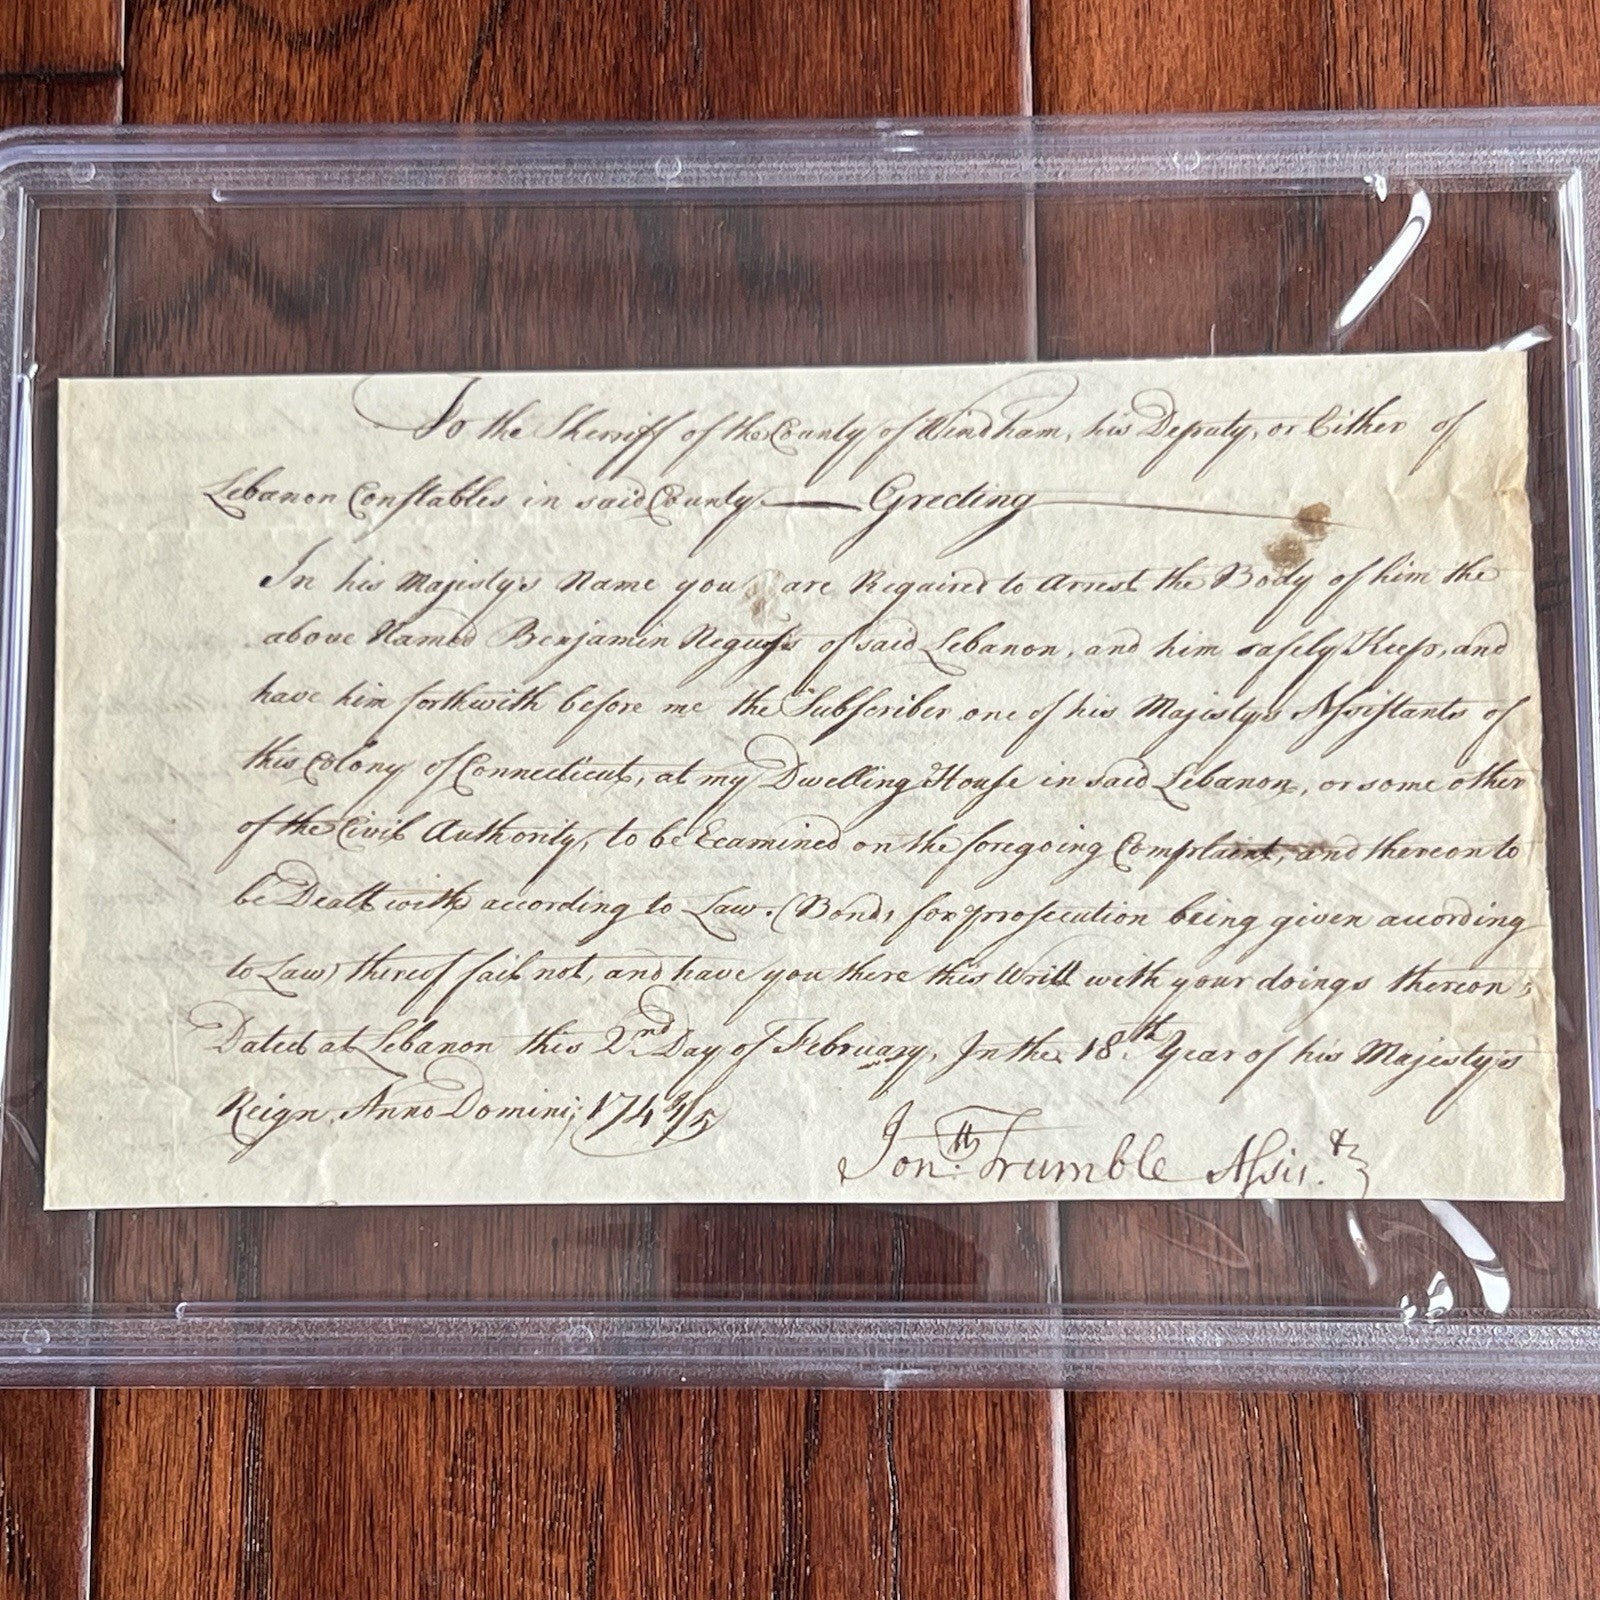 To the Sherriff of the County of Windham, his Deputy, or Either of
Lebanon Constables in said County — Greeting
In his Majestys Name you are Required to Arrest the Body of him the
above Named Benjamin Neguss of said Lebanon, and him safely Keep, and
have him forthwith before me the Subscriber one of his Majestys Assistants of
this Colony of Connecticut, at my Dwelling House in said Lebanon, or some other
of the Civil Authority, to be Examined on the foregoing Complaint, and thereon to
be Dealt with according to Law. (Bonds for prosecution being given acording
to Law) thereof fail not, and have you there this Writt with your doings thereon,
Dated at Lebanon this 2nd Day of February, In the 18th Year of his Majestys
Reign, Anno Domini; 1744/5
Jonth Trumble Assist